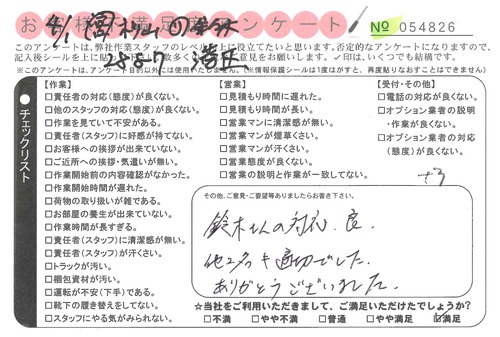 お客様満足度アンケート
№ 054826
4/1
2887
このアンケートは、弊社作業スタッフのレベル向上に役立てたいと思います。否定的なアンケートになりますので、
記入後シールを上に貼って
意見をお願いします。✓印は、いくつでも結構です。
※このアンケートは、アンケート目的以外には使用いたしません。(※情報保護シールは1度がはすと、再度貼りなおすことはできません)
チェックリスト
【作業】
□責任者の対応(態度)が良くない。
□他のスタッフの対応(態度)が良くない。
□作業を見ていて不安がある。
□責任者(スタッフ)に好感が持てない。
□お客様への挨拶が出来ていない。
□ご近所への挨拶・気遣いが無い。
□作業開始前の内容確認がなかった。
□作業開始時間が遅れた。
□荷物の取り扱いが雑である。
□お部屋の養生が出来ていない。
□作業時間が長すぎる。
□責任者(スタッフ)に清潔感が無い。
□責任者(スタッフ)が汗くさい。
□トラックが汚い。
□梱包資材が汚い。
□運転が不安(下手)である。
□靴下の履き替えをしてない。
□スタッフにやる気がみられない。
【営業】
□見積もり時間に遅れた。
□見積もり時間が長い。
□営業マンに清潔感が無い。
□営業マンが煙草くさい。
□営業マンが汗くさい。
□営業態度が良くない。
□営業の説明と作業が一致してない。
【受付・その他】
□電話の対応が良くない。
□オプション業者の説明
・作業が良くない。
□オプション業者の対応
(態度)が良くない。
その他、ご意見・ご要望等ありましたらお書き下さい。
鈴木さんの対応、良、
他スタッフも適切でした。
ありがとうございました。
☆当社をご利用いただきまして、ご満足いただけたでしょうか?
□不満 □やや不満 □普通 □やや満足 ☑満足